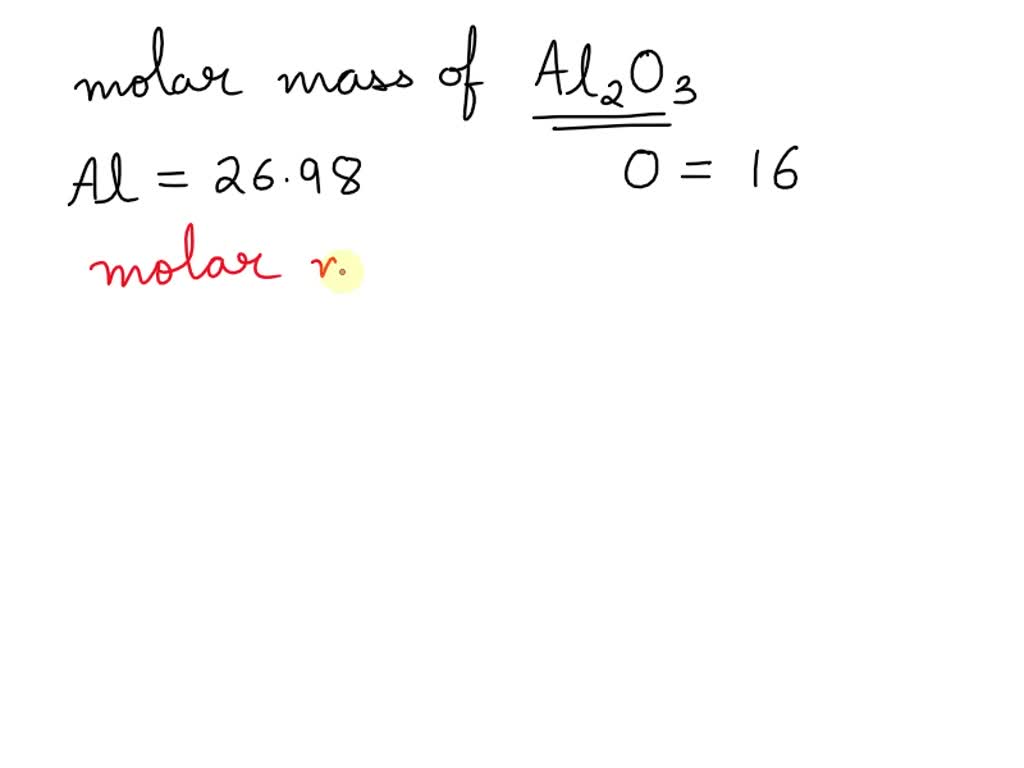 molar mass of Al₂O₃
Al = 26.98 O = 16
molar